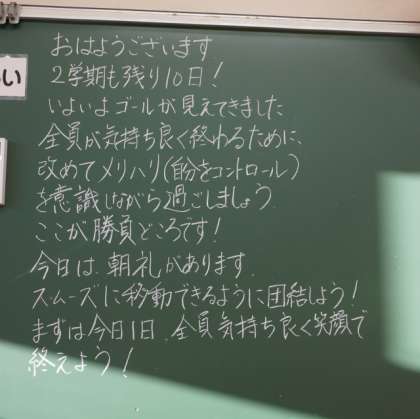 おはようございます
2学期も残り10日！
いよいよゴールが見えてきました
全員が気持ち良く終わるために、
改めてメリハリ(自分をコントロール)
を意識しながら過ごしましょう
ここが勝負どころです！
今日は、朝礼があります。
スムーズに移動できるように団結しよう！
まずは今日1日、全員気持ち良く笑顔で
終えよう！
い